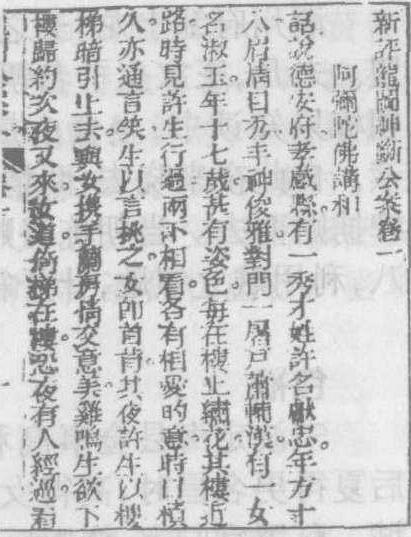 新評龍圖神斷公案卷一
阿彌陀佛講和
話說德安府孝感縣有一秀才姓許名獻忠年方十
八眉清目秀丰神俊雅對門一屠戶蕭輔漢有一女
名淑玉年十七歲甚有姿色每在樓上繡花其樓近
路時見許生行過兩下相看各有相愛的意時日積
久亦通言笑生以言挑之女即首肯其夜許生以樓
梯暗引上去與女攜手蘭房情交意美雞鳴生欲下
樓歸約次夜又來女道倚梯在樓恐夜有人經過看